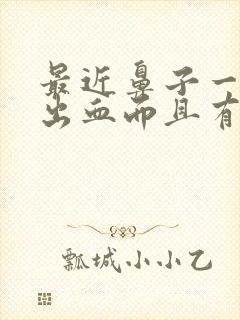 最近鼻子一
出血而且有
瓢城小小乙